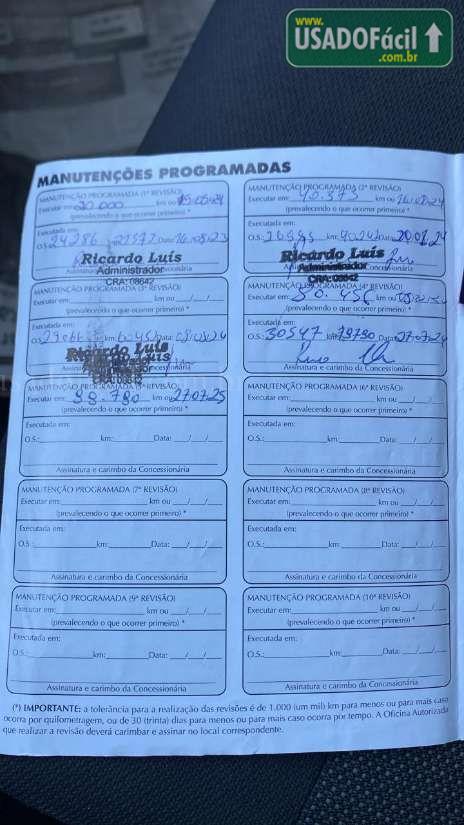 www.
USADOFácil
.com.br
MANUTENÇÕES PROGRAMADAS
MANUTENÇÃO PROGRAMADA (1ª REVISÃO)
Executar em: 20.000 km ou
(prevalecendo o que ocorrer primeiro) *
Executada em:
O.S.: 24286 Data: 16/08/23
Ricardo Luís
Administrador
CRA: 08642
MANUTENÇÃO PROGRAMADA (2ª REVISÃO)
Executar em: km ou
(prevalecendo o que ocorrer primeiro) *
Executada em:
O.S.: km: Data:
Ricardo Luís
Administrador
CRA: 08642
MANUTENÇÃO PROGRAMADA (3ª REVISÃO)
Executar em: km ou / /
(prevalecendo o que ocorrer primeiro) *
Executada em:
O.S.: km: Data:
Ricardo Luís
MANUTENÇÃO PROGRAMADA (4ª REVISÃO)
Executar em: 80.456 km ou
(prevalecendo o que ocorrer primeiro) *
Executada em:
O.S.: 30547 km: 78780 Data: 27/07/24
Assinatura e carimbo da Concessionária
MANUTENÇÃO PROGRAMADA (5ª REVISÃO)
Executar em: 98.780 km ou 27/07/25
(prevalecendo o que ocorrer primeiro) *
Executada em:
O.S.: km: Data: / /
Assinatura e carimbo da Concessionária
MANUTENÇÃO PROGRAMADA (6ª REVISÃO)
Executar em: km ou / /
(prevalecendo o que ocorrer primeiro) *
Executada em:
O.S.: km: Data: / /
Assinatura e carimbo da Concessionária
MANUTENÇÃO PROGRAMADA (7ª REVISÃO)
Executar em: km ou / /
(prevalecendo o que ocorrer primeiro) *
Executada em:
O.S.: km: Data: / /
Assinatura e carimbo da Concessionária
MANUTENÇÃO PROGRAMADA (8ª REVISÃO)
Executar em: km ou / /
(prevalecendo o que ocorrer primeiro) *
Executada em:
O.S.: km: Data: / /
Assinatura e carimbo da Concessionária
MANUTENÇÃO PROGRAMADA (9ª REVISÃO)
Executar em: km ou / /
(prevalecendo o que ocorrer primeiro) *
Executada em:
O.S.: km: Data: / /
Assinatura e carimbo da Concessionária
MANUTENÇÃO PROGRAMADA (10ª REVISÃO)
Executar em: km ou / /
(prevalecendo o que ocorrer primeiro) *
Executada em:
O.S.: km: Data: / /
Assinatura e carimbo da Concessionária
(*) IMPORTANTE: a tolerância para a realização das revisões é de 1.000 (um mil) km para menos ou para mais caso
ocorra por quilometragem, ou de 30 (trinta) dias para menos ou para mais caso ocorra por tempo. A Oficina Autorizada
que realizar a revisão deverá carimbar e assinar no local correspondente.